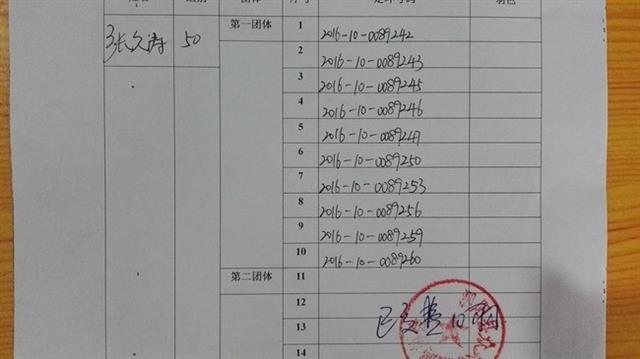 团体
第一团体 1 2016-10-0089242
张久涛 50
2 2016-10-0089243
3 2016-10-0089245
4 2016-10-0089246
5 2016-10-0089247
6 2016-10-0089250
7 2016-10-0089253
8 2016-10-0089256
9 2016-10-0089259
10 2016-10-0089260
第二团体 11
12
已交费
13
14